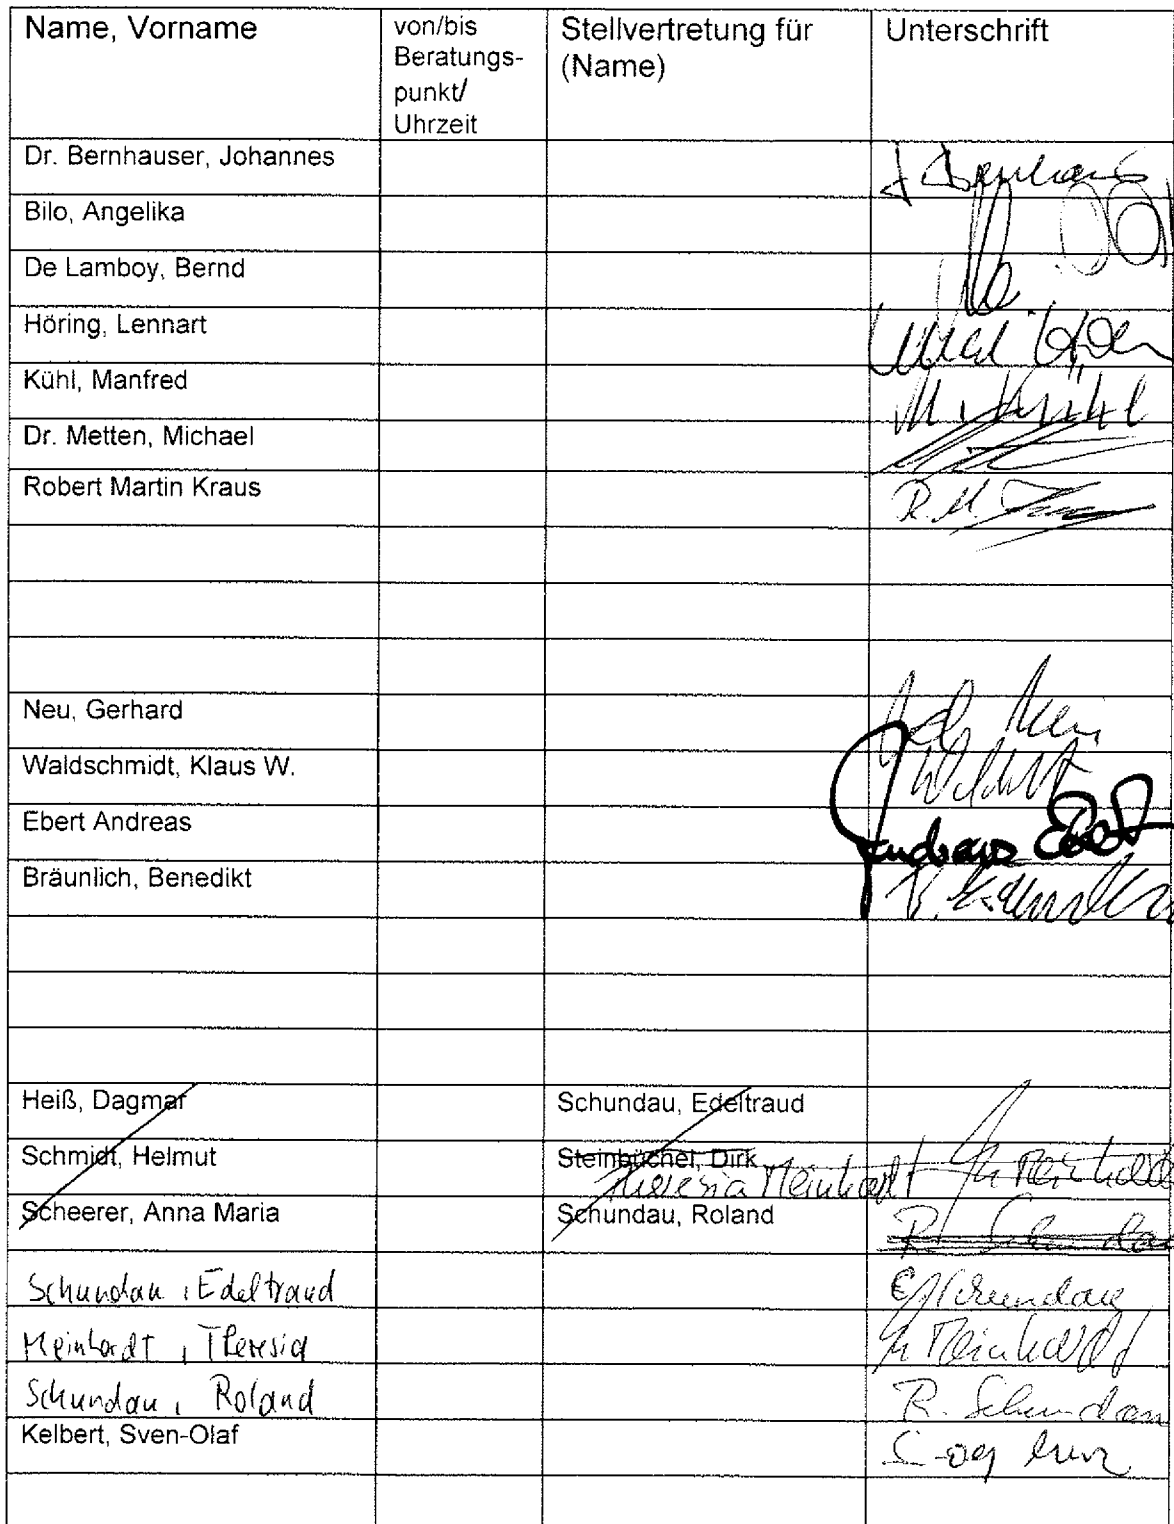 Name, Vorname
von/bis
Beratungs-
punkt/
Uhrzeit
Stellvertretung für
(Name)
Unterschrift
Dr. Bernhauser, Johannes
Bilo, Angelika
De Lamboy, Bernd
Höring, Lennart
Kühl, Manfred
M. Kühl
Dr. Metten, Michael
Robert Martin Kraus
R. M.
Neu, Gerhard
Waldschmidt, Klaus W.
Ebert Andreas
Andreas Ebert
Bräunlich, Benedikt
Heiß, Dagmar
Schundau, Edeltraud
Schmidt, Helmut
Steinbüchel, Dirk
Theresia Meinhardt
Scheerer, Anna Maria
Schundau, Roland
R. Schundau
Schundau, Edeltraud
E. Schundau
Meinhardt, Theresia
Meinhardt
Schundau, Roland
R. Schundau
Kelbert, Sven-Olaf